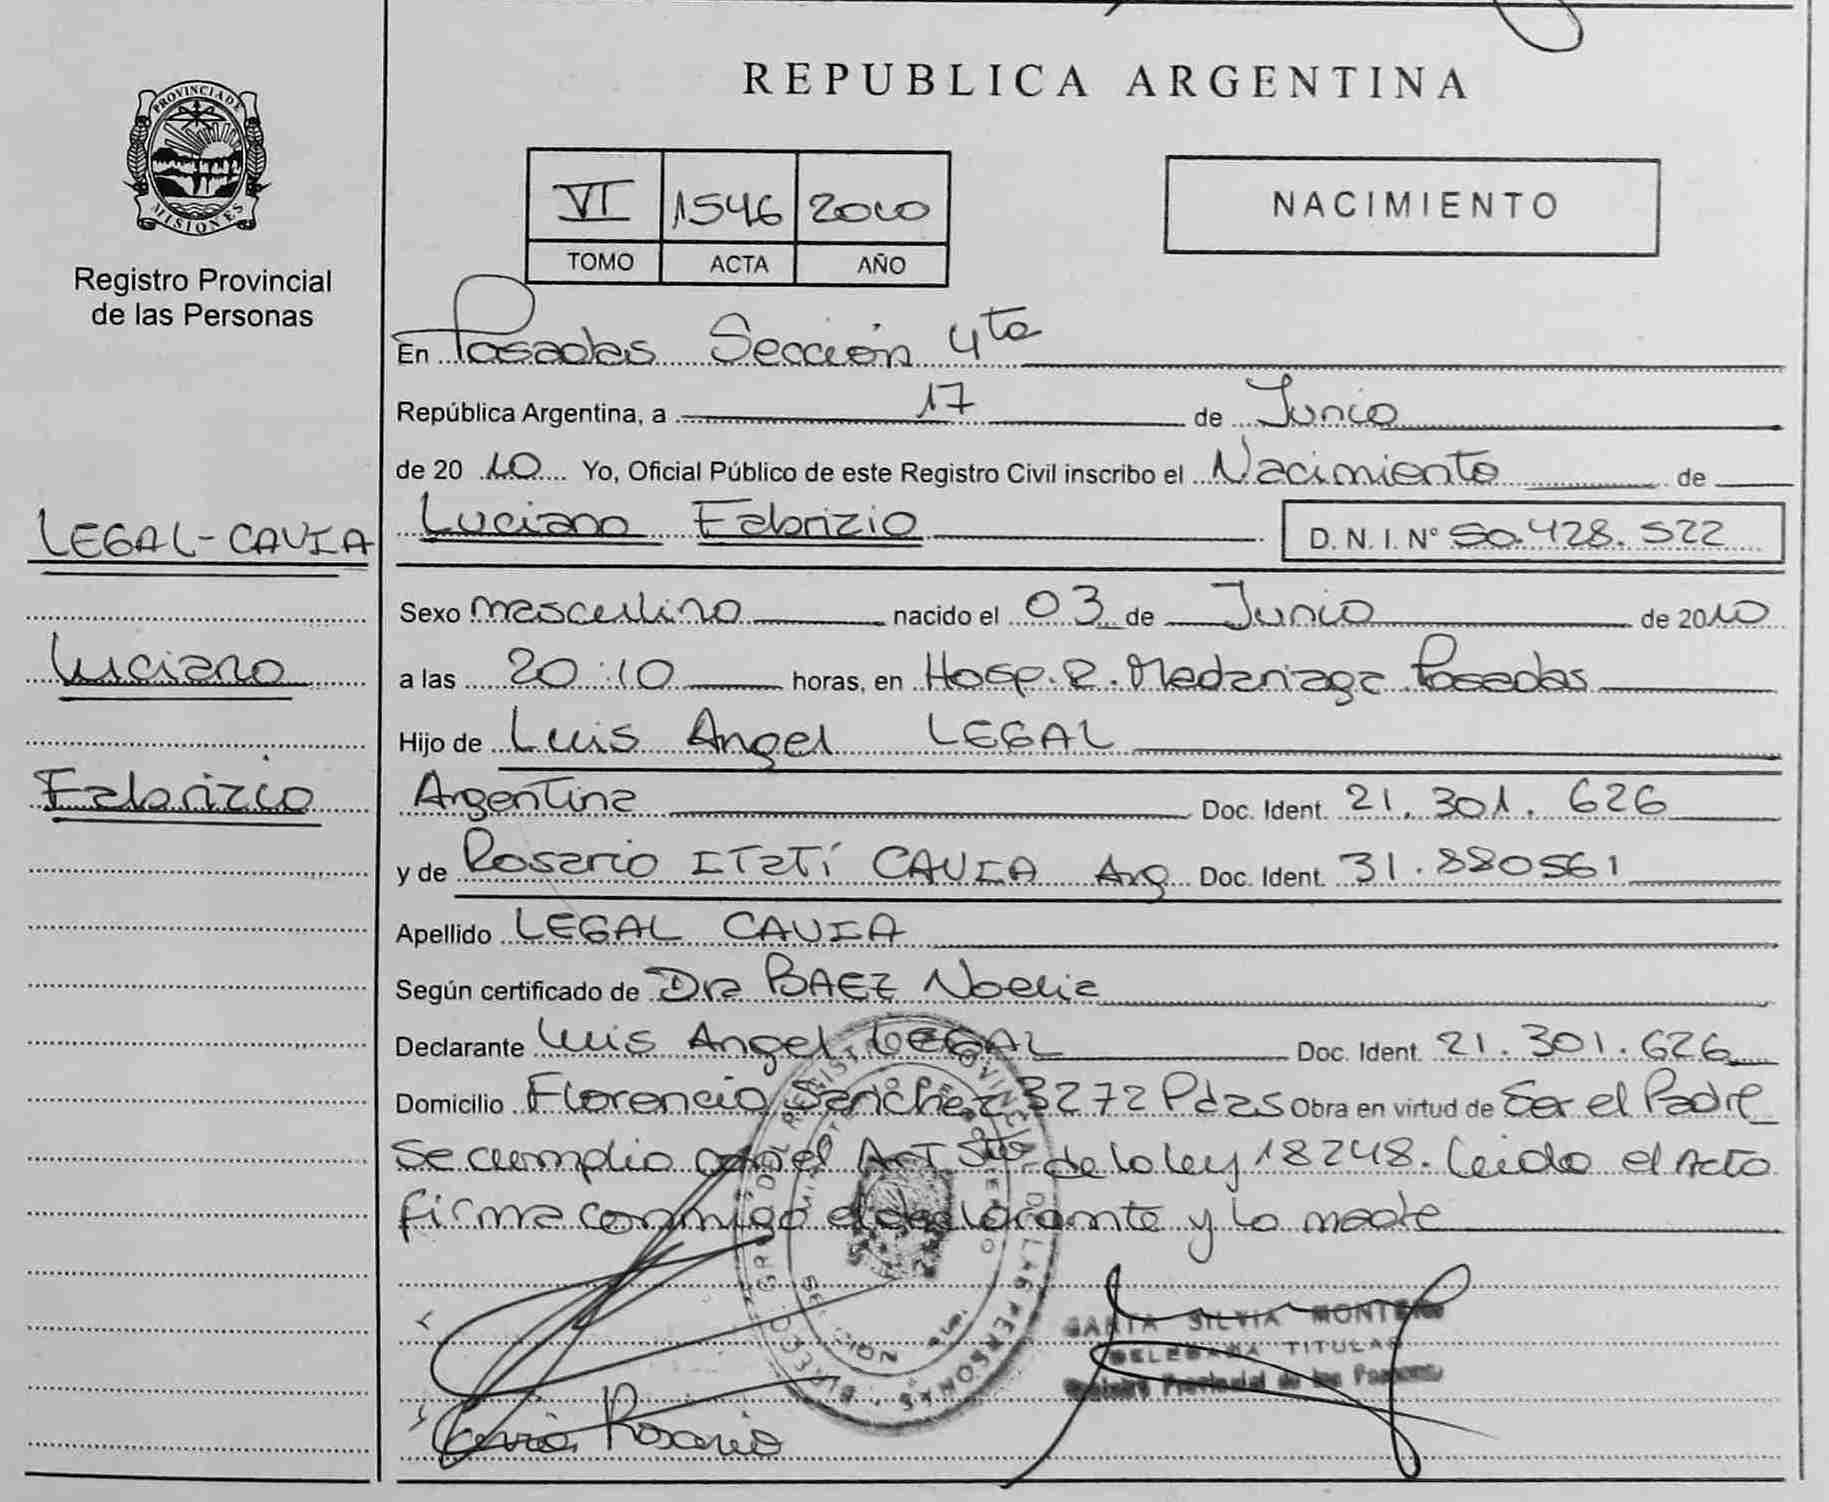 REPUBLICA ARGENTINA
PROVINCIA DE MISIONES
Registro Provincial
de las Personas
VI 1546 2010
TOMO ACTA AÑO
NACIMIENTO
En Posadas Sección 4ta
República Argentina, a 17 de Junio
de 2010 Yo, Oficial Público de este Registro Civil inscribo el Nacimiento de
LEGAL-CAVIA
Luciano
Fabrizio
Luciano Fabrizio D. N. I. N° 50.428.522
Sexo masculino nacido el 03 de Junio de 2010
a las 20:10 horas, en Hosp. R. Madariaga Posadas
Hijo de Luis Angel LEGAL
Argentina Doc. Ident. 21.301.626
y de Rosario ITatí CAVIA Arg Doc. Ident. 31.880561
Apellido LEGAL CAVIA
Según certificado de Dra BAEZ Noelia
Declarante Luis Angel LEGAL Doc. Ident. 21.301.626
Domicilio Florencio Sanchez 3272 Pdas Obra en virtud de Ser el Padre
Se cumplio con el Art 5to de la ley 18248. Leido el Acto
firma conmigo el declarante y la madre
SILVIA MONTERO
DELEGADA TITULAR
Registro Provincial de las Personas
Cavia Rosario